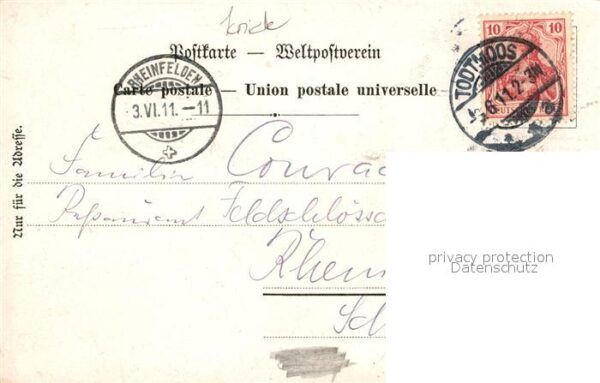 Postkarte — Weltpostverein
Carte postale — Union postale universelle
10 10
TODTMOOS
RHEINFELDEN
3.VI.11.–11
Nur für die Adresse.
Familie Conrad
Restaurant Feldschlössc
Rhein
Sch
privacy protection
Datenschutz